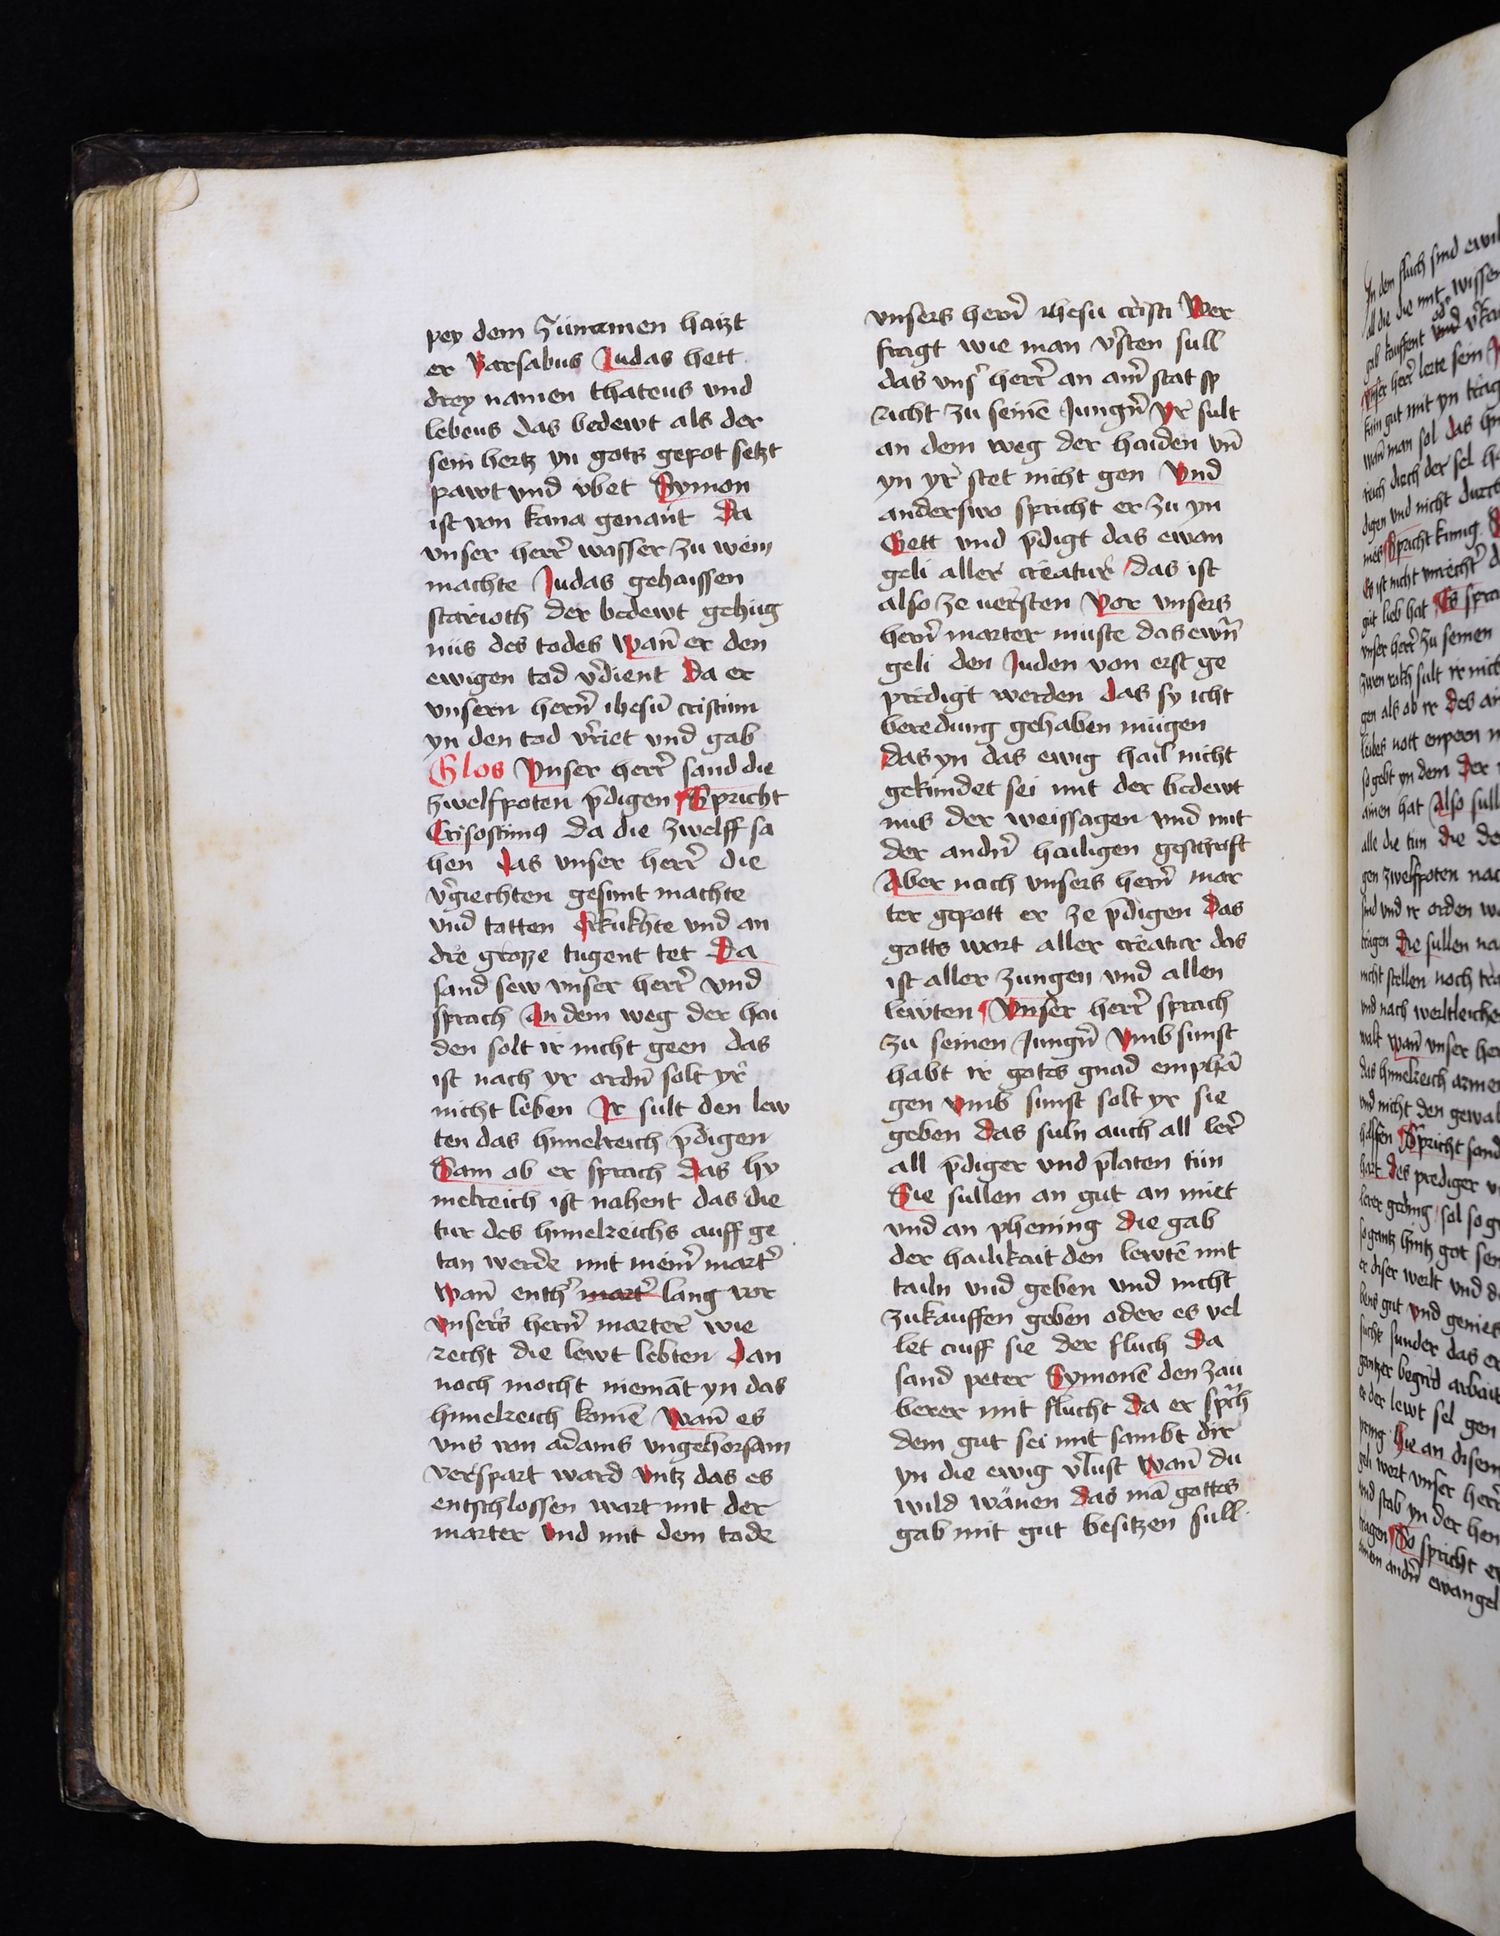 pey dem zünamen haizt
er Barsabus Judas hett
drey namen thateus vnd
lebeus das bedewt als der
sein hertz yn gots gepot setzt
pawt vnd vbet Symon
ist von kana genant Da
vnser herr̄ wasser zu wein
machte Judas gehaissen
scarioth der bedewt gehüg
nüs des todes wan̄ er den
ewigen tod v̄dient Da er
vnsern hern̄ ihesū cristum
yn den tod v̄riet vnd gab
Glos Vnser herr̄ sand die
zwelfpoten p̄digen Spricht
Crisostimꝰ da die zwelff sa
hen das vnser herr̄ die
v̄giechten gesunt machte
vnd tatten erkukhte vnd an
dre grozze tugent tet Da
sand sew vnser herr̄ vnd
sprach An dem weg der hai
den solt ir nicht geen das
ist nach yr ordn̄ solt yr
nicht leben Ir sult den lew
ten das himelreich p̄digen
Sam ob er sprach das hy
melreich ist nahent das die
tur des himelreichs auff ge
tan werde mit mein̄ mart̄
wan̄ enth̄ mart̄ lang vor
vnsers hern̄ marter wie
recht die lewt lebten dan
noch mocht niemāt yn das
himelreich komē wan̄ es
vns von adams vngehorsam
verspart ward vntz das es
entschlossen wart mit der
marter vnd mit dem tode
vnsers hern̄ ihesu cristi Wer
fragt wie man v̄sten sull
das vnß herr̄ an aīn̄ stat sp
richt zu seinē Jungn̄ yr sult
an dem weg der haiden vn̄
yn yr stet nicht gen Vnd
anderswo spricht er zu yn
Gett vnd p̄digt das ewan
geli aller creatur das ist
also ze uersten Vor vnsers
hern̄ marter müste das ewn̄
geli den Juden von erst ge
predigt werden das sy icht
beredung gehaben mügen
das yn das ewig hail nicht
gekündet sei mit der bedewt
nus der weissagen vnd mit
der andn̄ hailigen geschrift
Aber nach vnsers hern̄ mar
ter gepott er ze p̄digen das
gotts wort aller creatur das
ist aller zungen vnd allen
lewten Vnser herr̄ sprach
zu seinen Jungn̄ Vmb sunst
habt ir gotes gnad emphā
gen vmb sunst solt yr sie
geben das suln auch all ler̄
all p̄diger vnd p̄laten tün
Sie sullen an gut an miet
vnd an phening die gab
der hailikait den lewtē mit
tailn vnd geben vnd nicht
zukauffen geben oder es vel
let auff sie der fluch da
sand peter Symonē den zau
berer mit flucht da er sp̄ch
dem gut sei mit sambt dir
yn die ewig v̄lust wan̄ du
wild wänen das mā gottes
gab mit gut besitzen sull